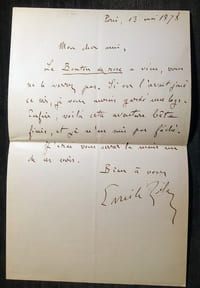 Paris, 13 mai 1878
Mon cher ami,
Le Bouton de rose a vécu, vous
ne le verrez pas. Si on l'avait joué
ce soir, je vous aurais gardé une loge.
Enfin, voilà cette aventure
finie, et je n'en suis pas fâché.
Je vous serrer la main un
de ces soirs.
Bien à vous
Emile Zola